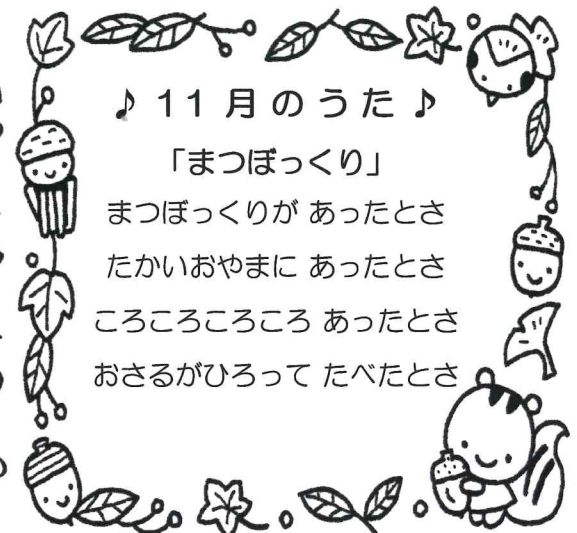 ♪ 11 月のうた ♪
「まつぼっくり」
まつぼっくりが あったとさ
たかいおやまに あったとさ
ころころころころ あったとさ
おさるがひろって たべたとさ